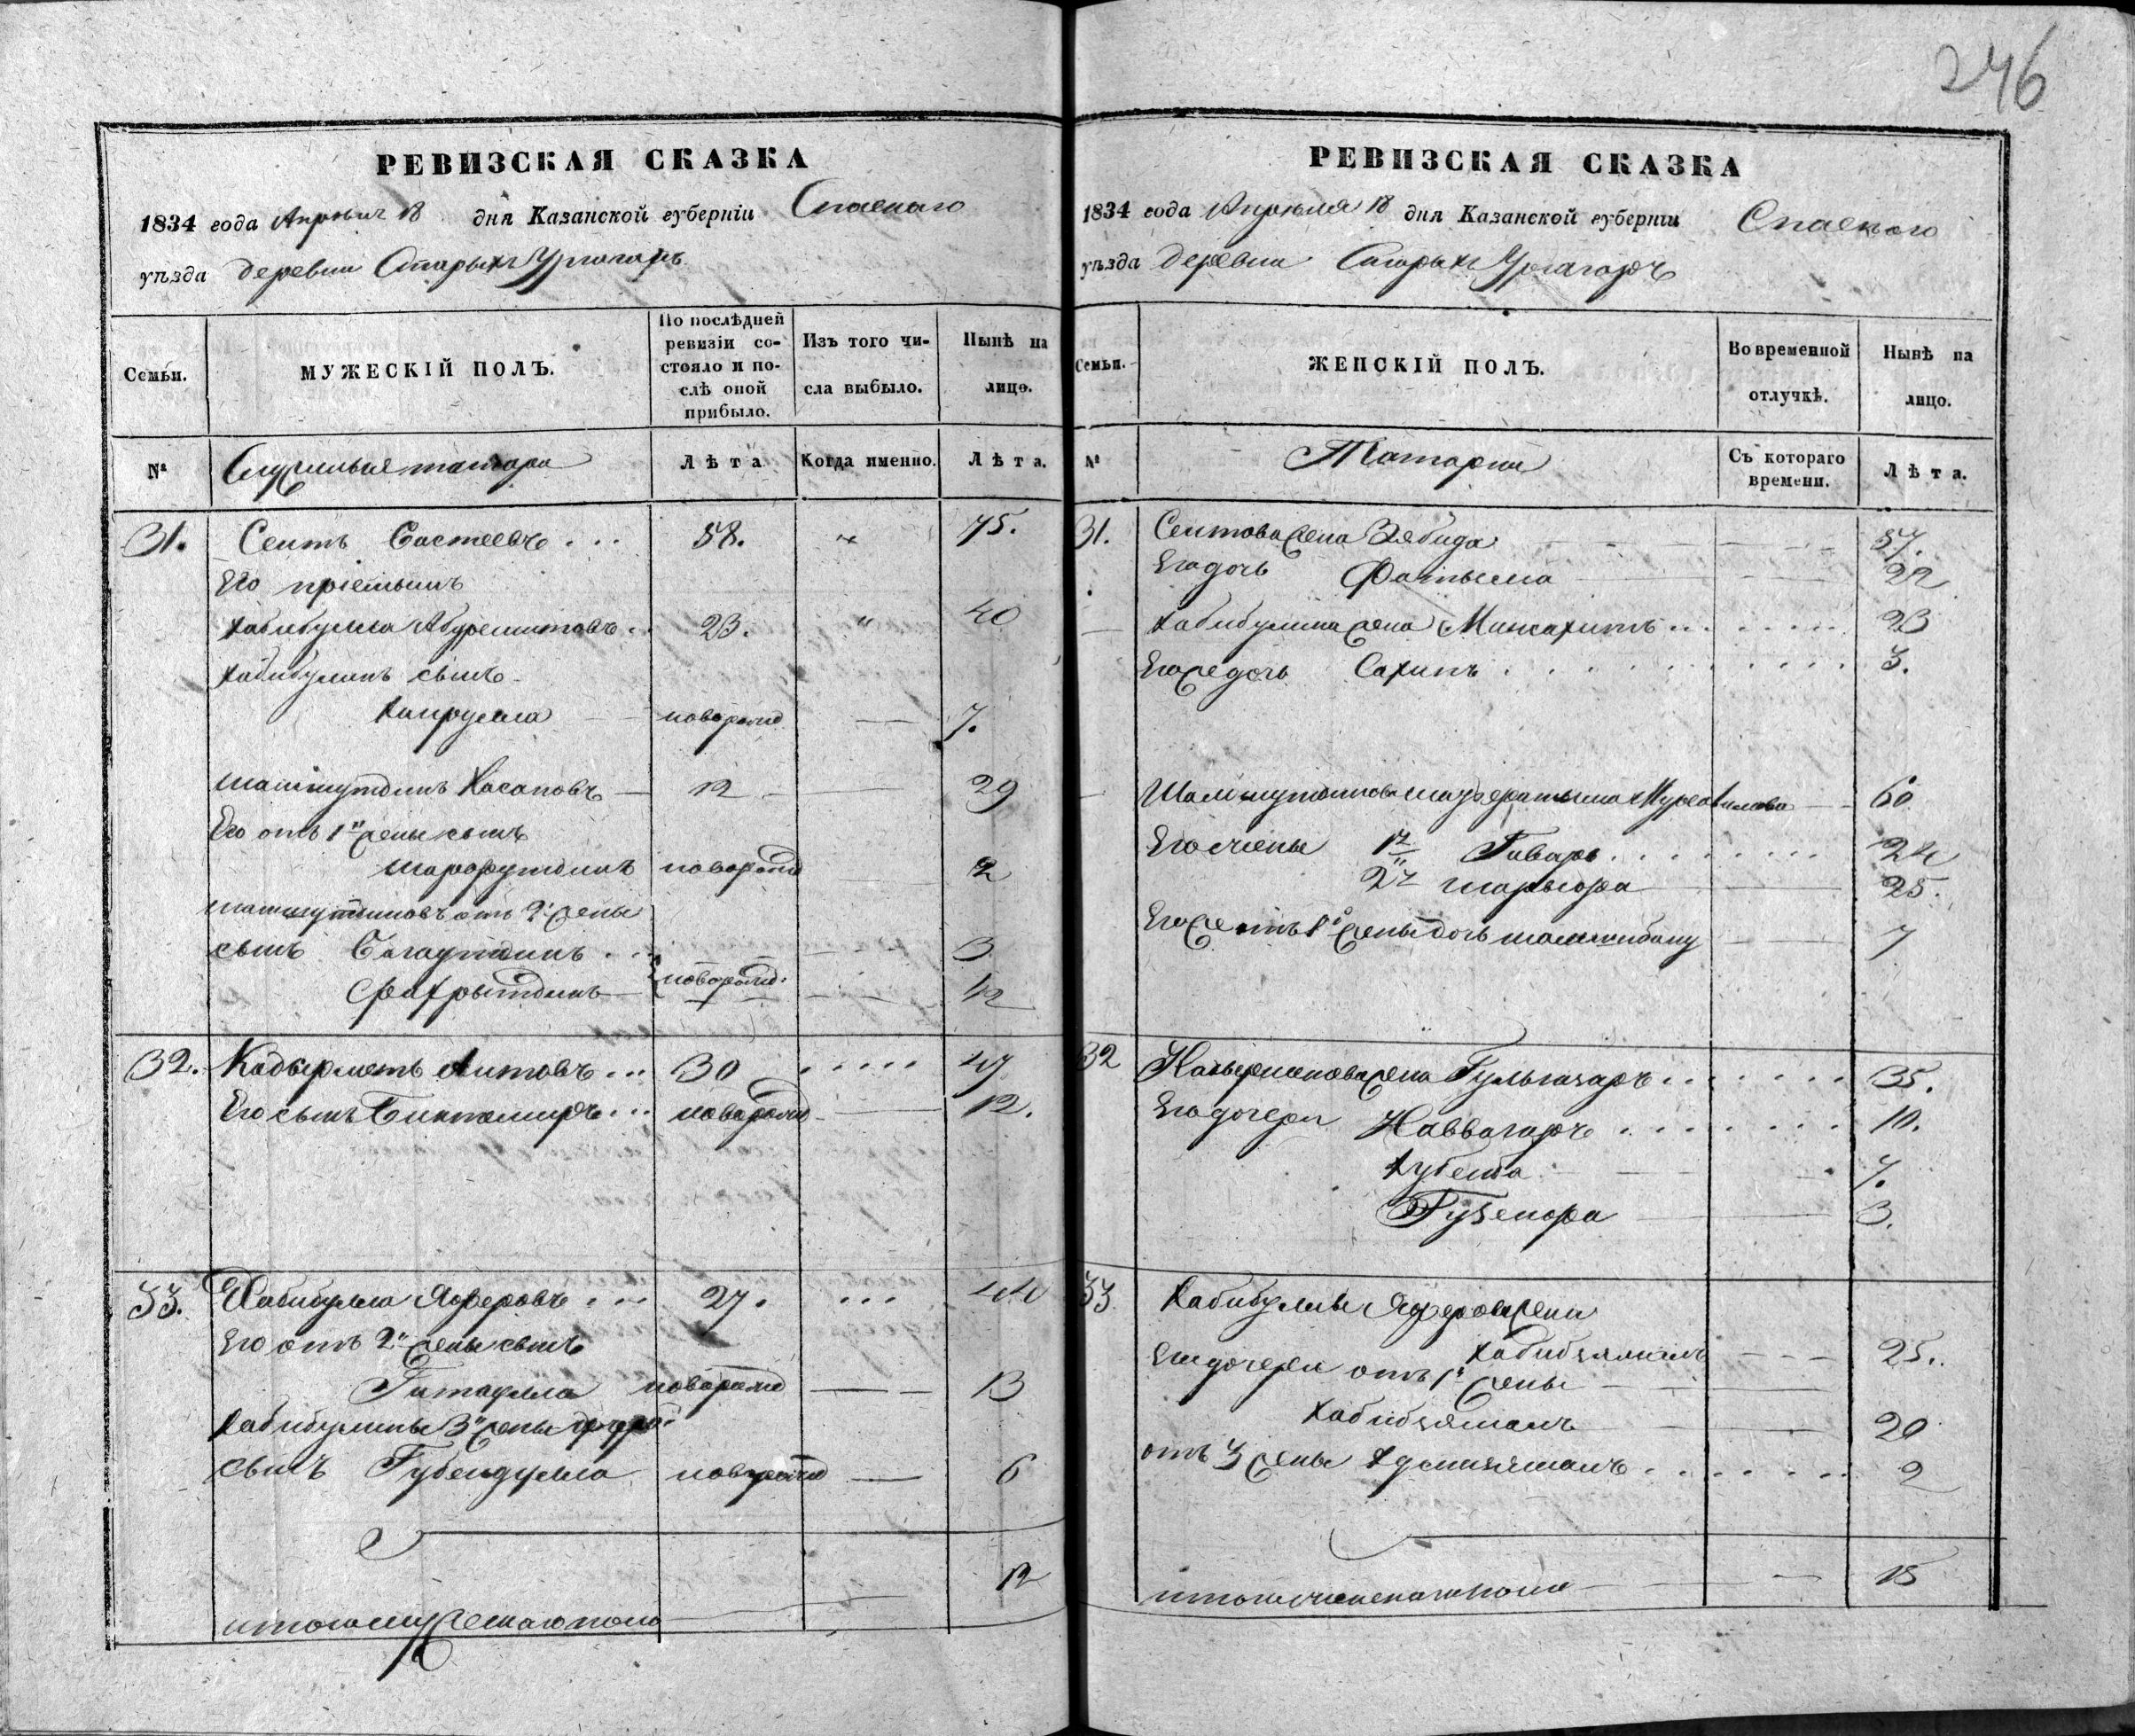 246
РЕВИЗСКАЯ СКАЗКА
1834 года Апреля 18 дня Казанской губерніи Спаскаго
уѣзда деревни Старыхъ Ургагаръ
Семьи.
МУЖЕСКІЙ ПОЛЪ.
По послѣдней ревизіи со-
стояло и по-
слѣ оной
прибыло.
Изъ того чи-
сла выбыло.
Нынѣ на
лицо.
№
Служилыя татара
Лѣта
Когда именно.
Лѣта.
31. Сеитъ Бастеевъ ... 58. " 75.
Его пріемышъ
Хабибулла Абдрешитовъ .. 23. " 40
Хабибулинъ сынъ
Хайрулла новорожд 7.
Шамшутдинъ Хасановъ 12 29
Его отъ 1й жены сынъ
Шарафутдинъ новорожд 2
Шамшутдиновъ отъ 2й жены
сынъ Багаутдинъ 3
Фахрытдинъ новорожд. 12
32. Кадырметь Аитовъ ... 30 ..... 47
Его сынъ Биктемиръ ... новорожд 12.
33. Хабибулла Яферовъ ... 27. ... 44
Его отъ 2й жены сынъ
Гитаулла новорожд 13
Хабибулины 3й жены
сынъ Губейдулла новорожд 6
12
итого мужескаго пола
РЕВИЗСКАЯ СКАЗКА
1834 года Апреля 18 дня Казанской губерніи Спаскаго
уѣзда деревни Старыхъ Ургагаръ
Семьи.
ЖЕНСКІЙ ПОЛЪ.
Во временной
отлучкѣ.
Нынѣ на
лицо.
№
Татарки
Съ котораго
времени.
Лѣта.
31. Сеитова жена Зябида 57.
Его дочь Фатыма 22
Хабибулина жена Минсахипъ 23
Его же дочь Сахипъ 3.
Шамшутдинова 60
Его жены 1я Гаваръ 24
2я Шарыфа 25.
Его же отъ 1й жены дочь 7
32 жена Гульгизаръ 35.
Его дочери Наввагаръ 10.
Хубейба 7.
Гузенофа 3.
33 Хабибулины Яферова жены
Хабибзямалъ 25.
Его дочери отъ 1й жены
Хабибзямалъ 20
отъ 3 жены Хуснизямалъ 2
итого женскаго пола 15